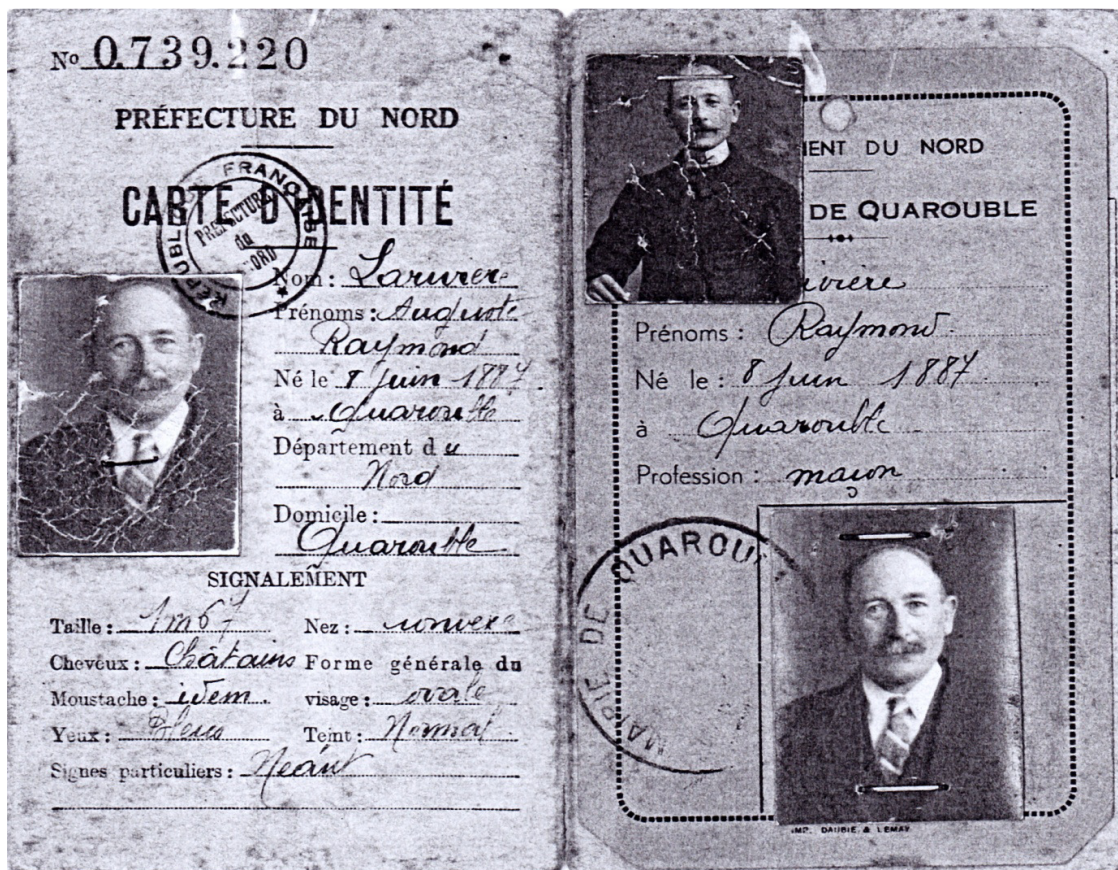 No 0.739.220
PRÉFECTURE DU NORD
CARTE D'IDENTITÉ
RÉPUBLIQUE FRANÇAISE
PRÉFECTURE
du
NORD
Nom : Larivière
Prénoms : Auguste
Raymond
Né le 8 Juin 1887
à Quarouble
Département du
Nord
Domicile :
Quarouble
SIGNALEMENT
Taille : 1m67 Nez : convexe
Cheveux : Châtains Forme générale du
Moustache : idem visage : ovale
Yeux : Bleus Teint : Normal
Signes particuliers : Néant
MENT DU NORD
DE QUAROUBLE
ivière
Prénoms : Raymond
Né le : 8 Juin 1887
à Quarouble
Profession : maçon
MAIRIE DE QUAROU
IMP. DAUBIE & LEMAY